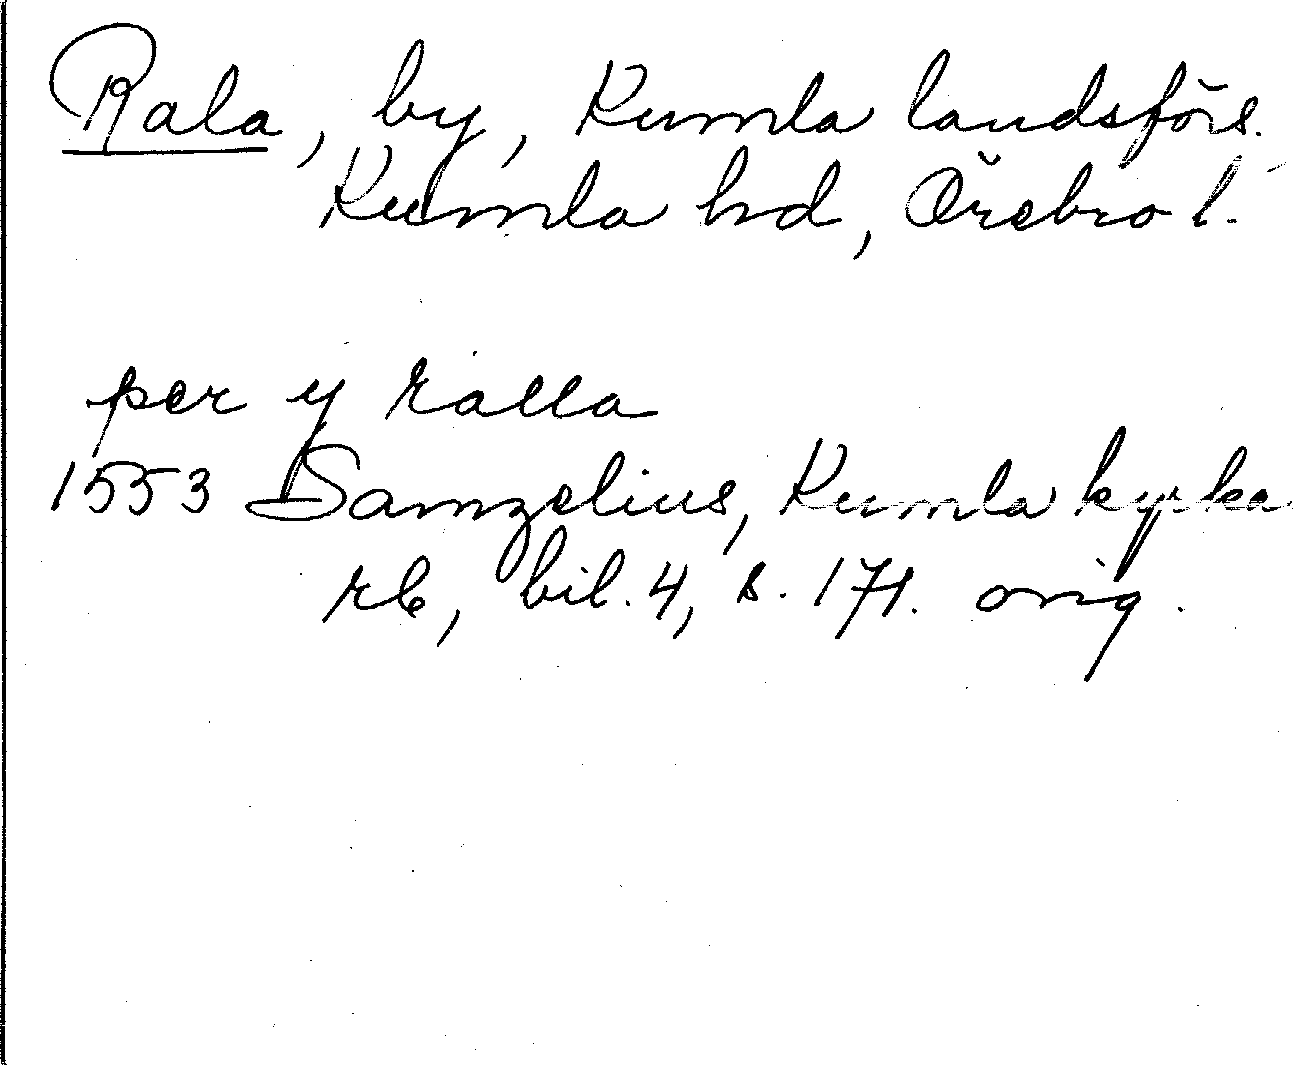 Rala, by, Kumla landsförs.
Kumla hd, Örebro l.
per y ralla
1553 Samzelius, Kumla kyrka
rb, bil. 4, s. 171. orig.